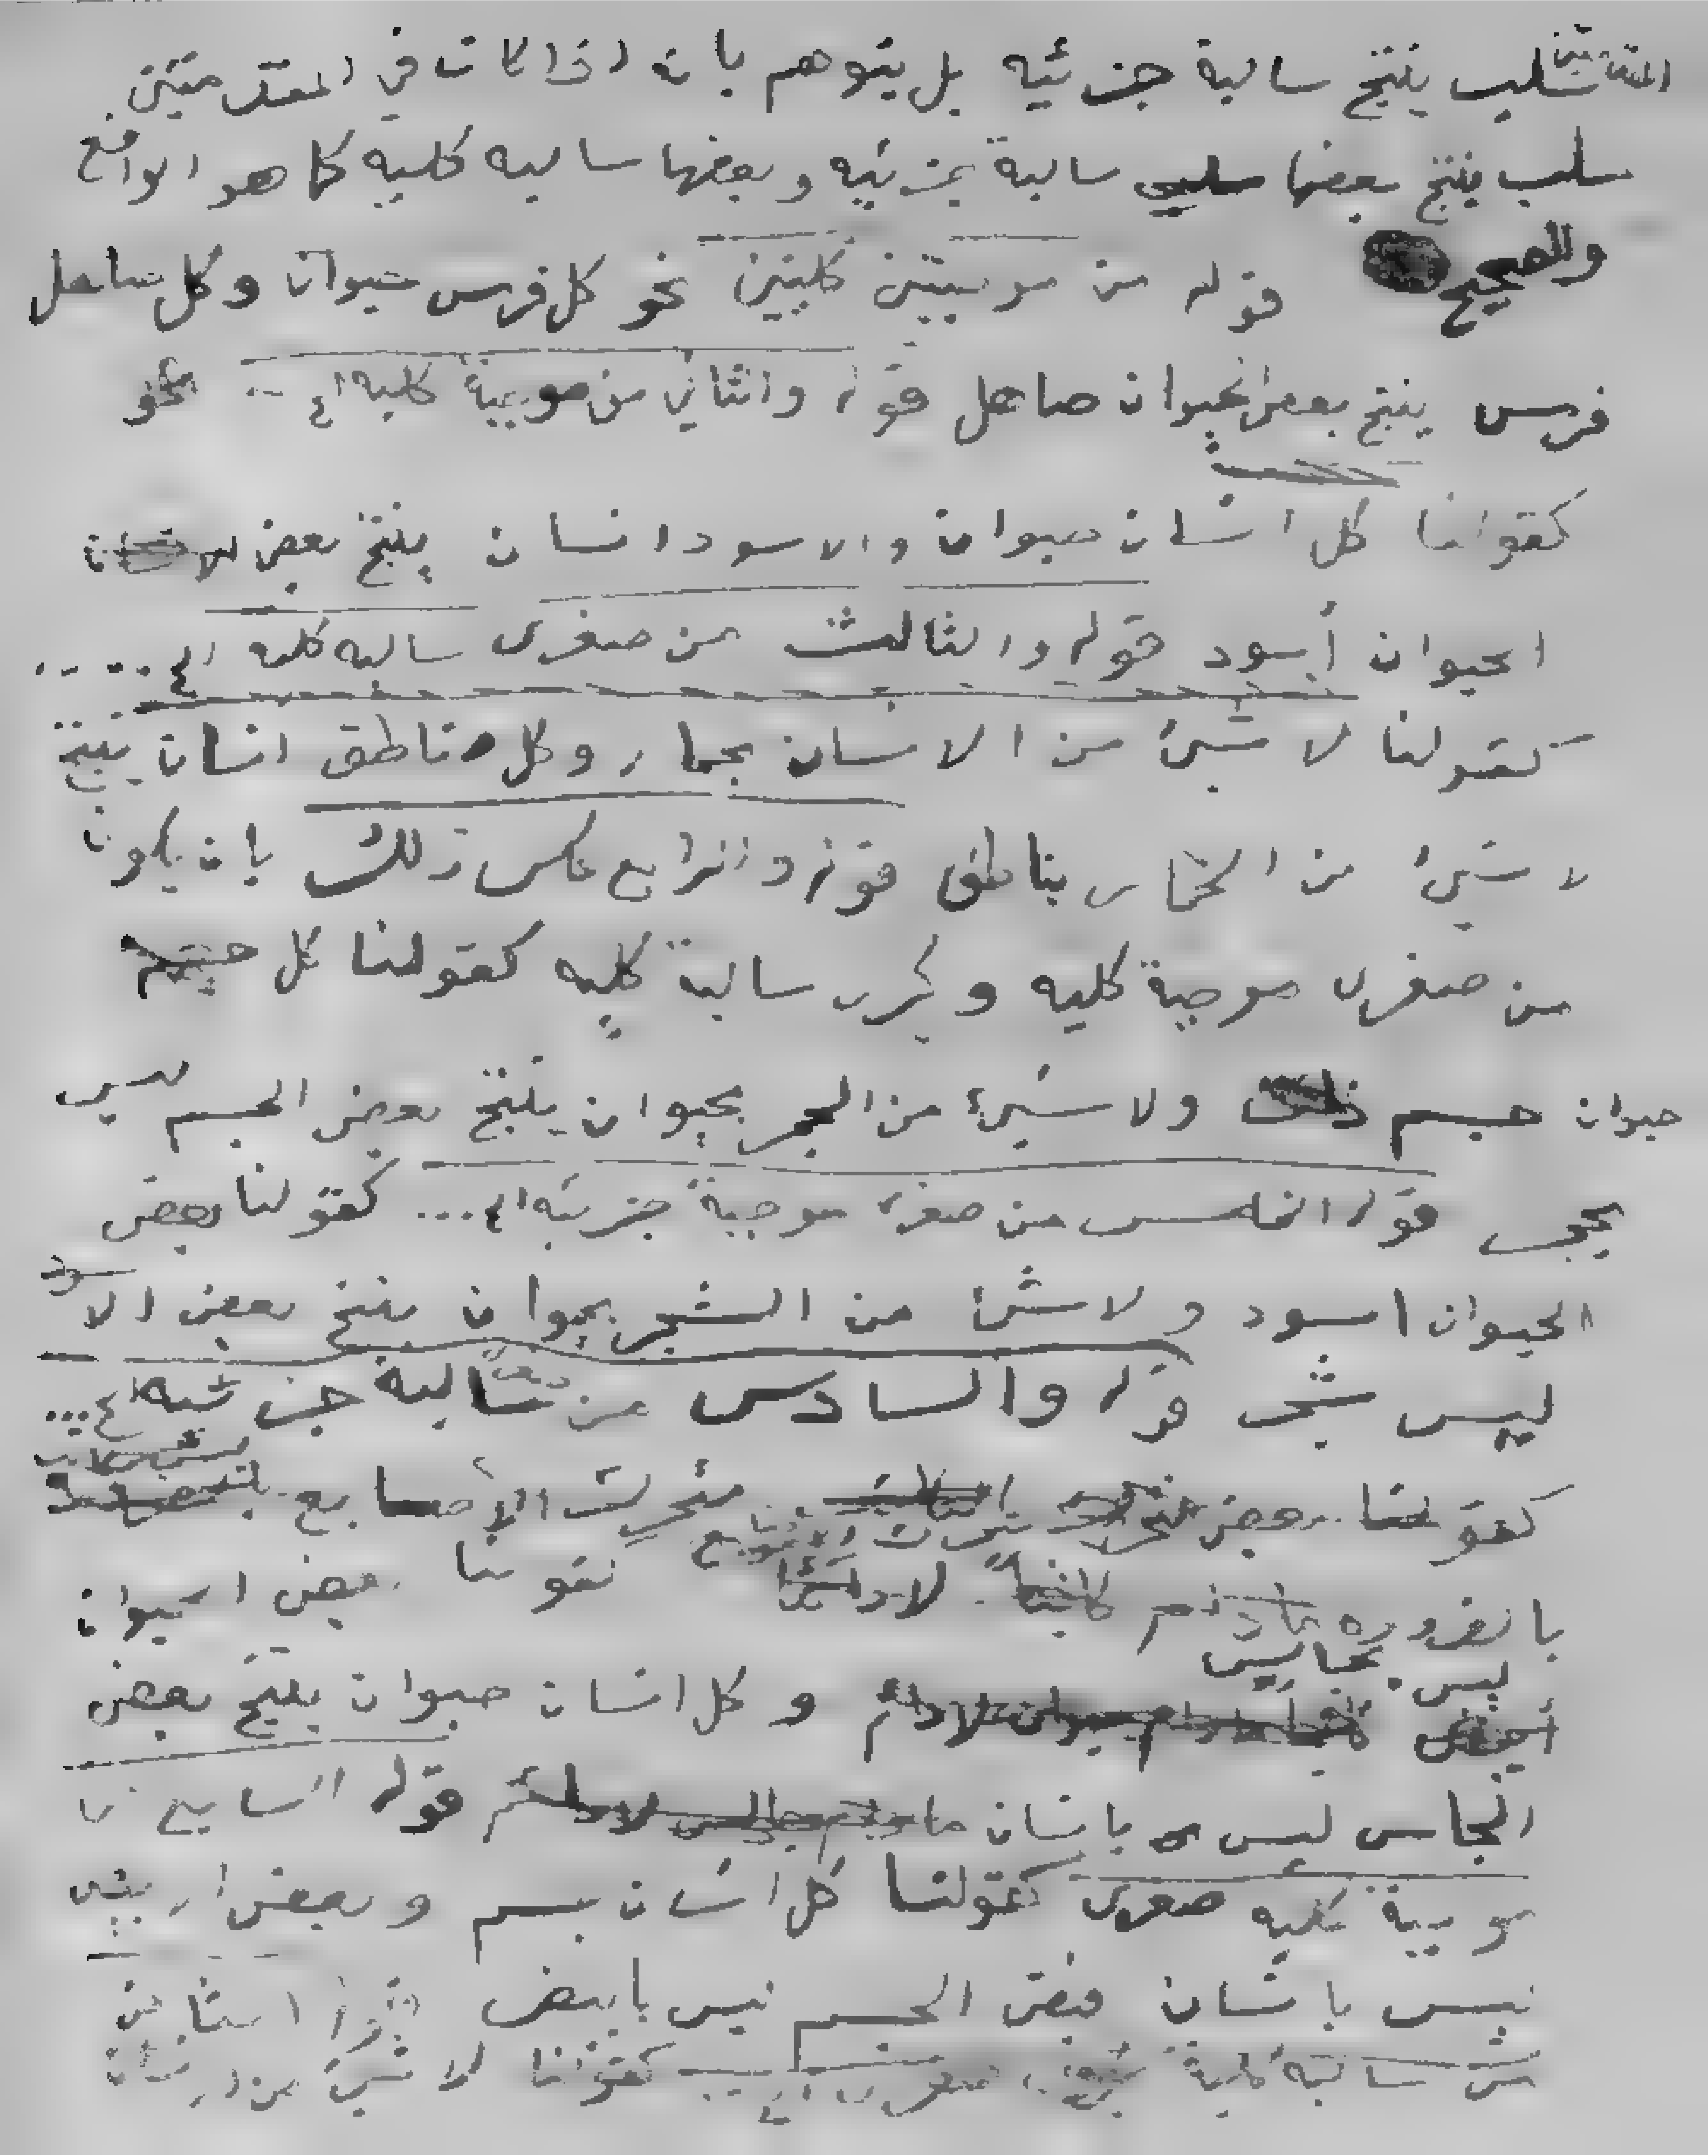 المقدمتين سلب ينتج سالبة جزئيه بل يتوهم بانه اذا كانت في المقدمتين
سلب ينتج بعضها سالبة جزئيه وبعضها سالبه كليه كما هو الواقع
والصحيح قوله من موجبتين كليتين نحو كل فرس حيوان وكل صاهل
فرس ينتج بعض الحيوان صاهل قوله والثاني من موجبة كليه الخ ... نحو
كقولنا كل انسان حيوان والاسود انسان ينتج بعض
الحيوان أسود قوله والثالث من صغرى سالبه كليه الخ .....
كقولنا لا شيئ من الانسان بحمار وكل ناطق انسان ينتج
لا شيئ من الحمار بناطق قوله والرابع عكس ذلك بان يكون
من صغرى موجبة كليه وكبرى سالبة كليه كقولنا كل
حيوان جسم ولا شيئ من الحجر بحيوان ينتج بعض الجسم ليس
بحجر قوله الخامس من صغرى موجبة جزئيه الخ ... كقولنا بعض
الحيوان اسود ولا شئ من الشجر بحيوان ينتج بعض الاسود
ليس شجر قوله والسادس من سالبة جزئيه الخ ...
كقولنا بعض متحرك الاصابع
بالضروره مادام لا دائما نقولنا بعض الحيوان
ليس بجالس وكل انسان حيوان ينتج بعض
الجالس ليس بانسان قوله السابع من
موجبة كليه صغرى كقولنا كل انسان جسم وبعض الابيض
ليس بانسان فبعض الجسم ليس بابيض قوله الثامن
من سالبة كلية صغرى الخ ... كقولنا لا شيئ من الانسان